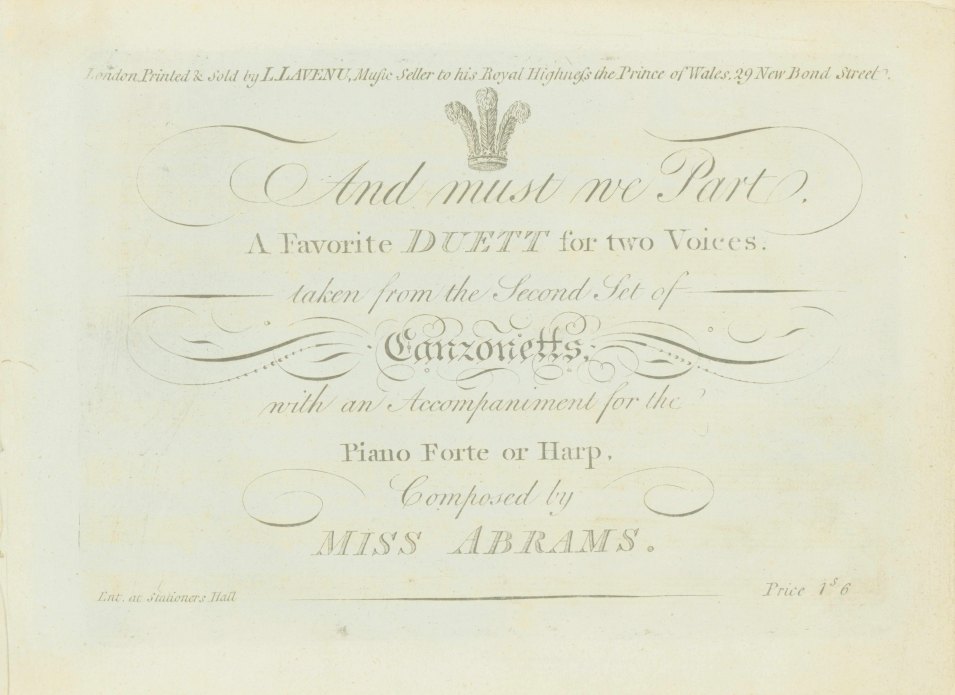 London, Printed & Sold by L. LAVENU, Muſic Seller to his Royal Highneſs the Prince of Wales, 29 New Bond Street.
And must we Part,
A Favorite DUETT for two Voices.
taken from the Second Set of
Canzonetts,
with an Accompaniment for the
Piano Forte or Harp,
Composed by
MISS ABRAMS.
Ent. at Stationers Hall
Price 1s 6